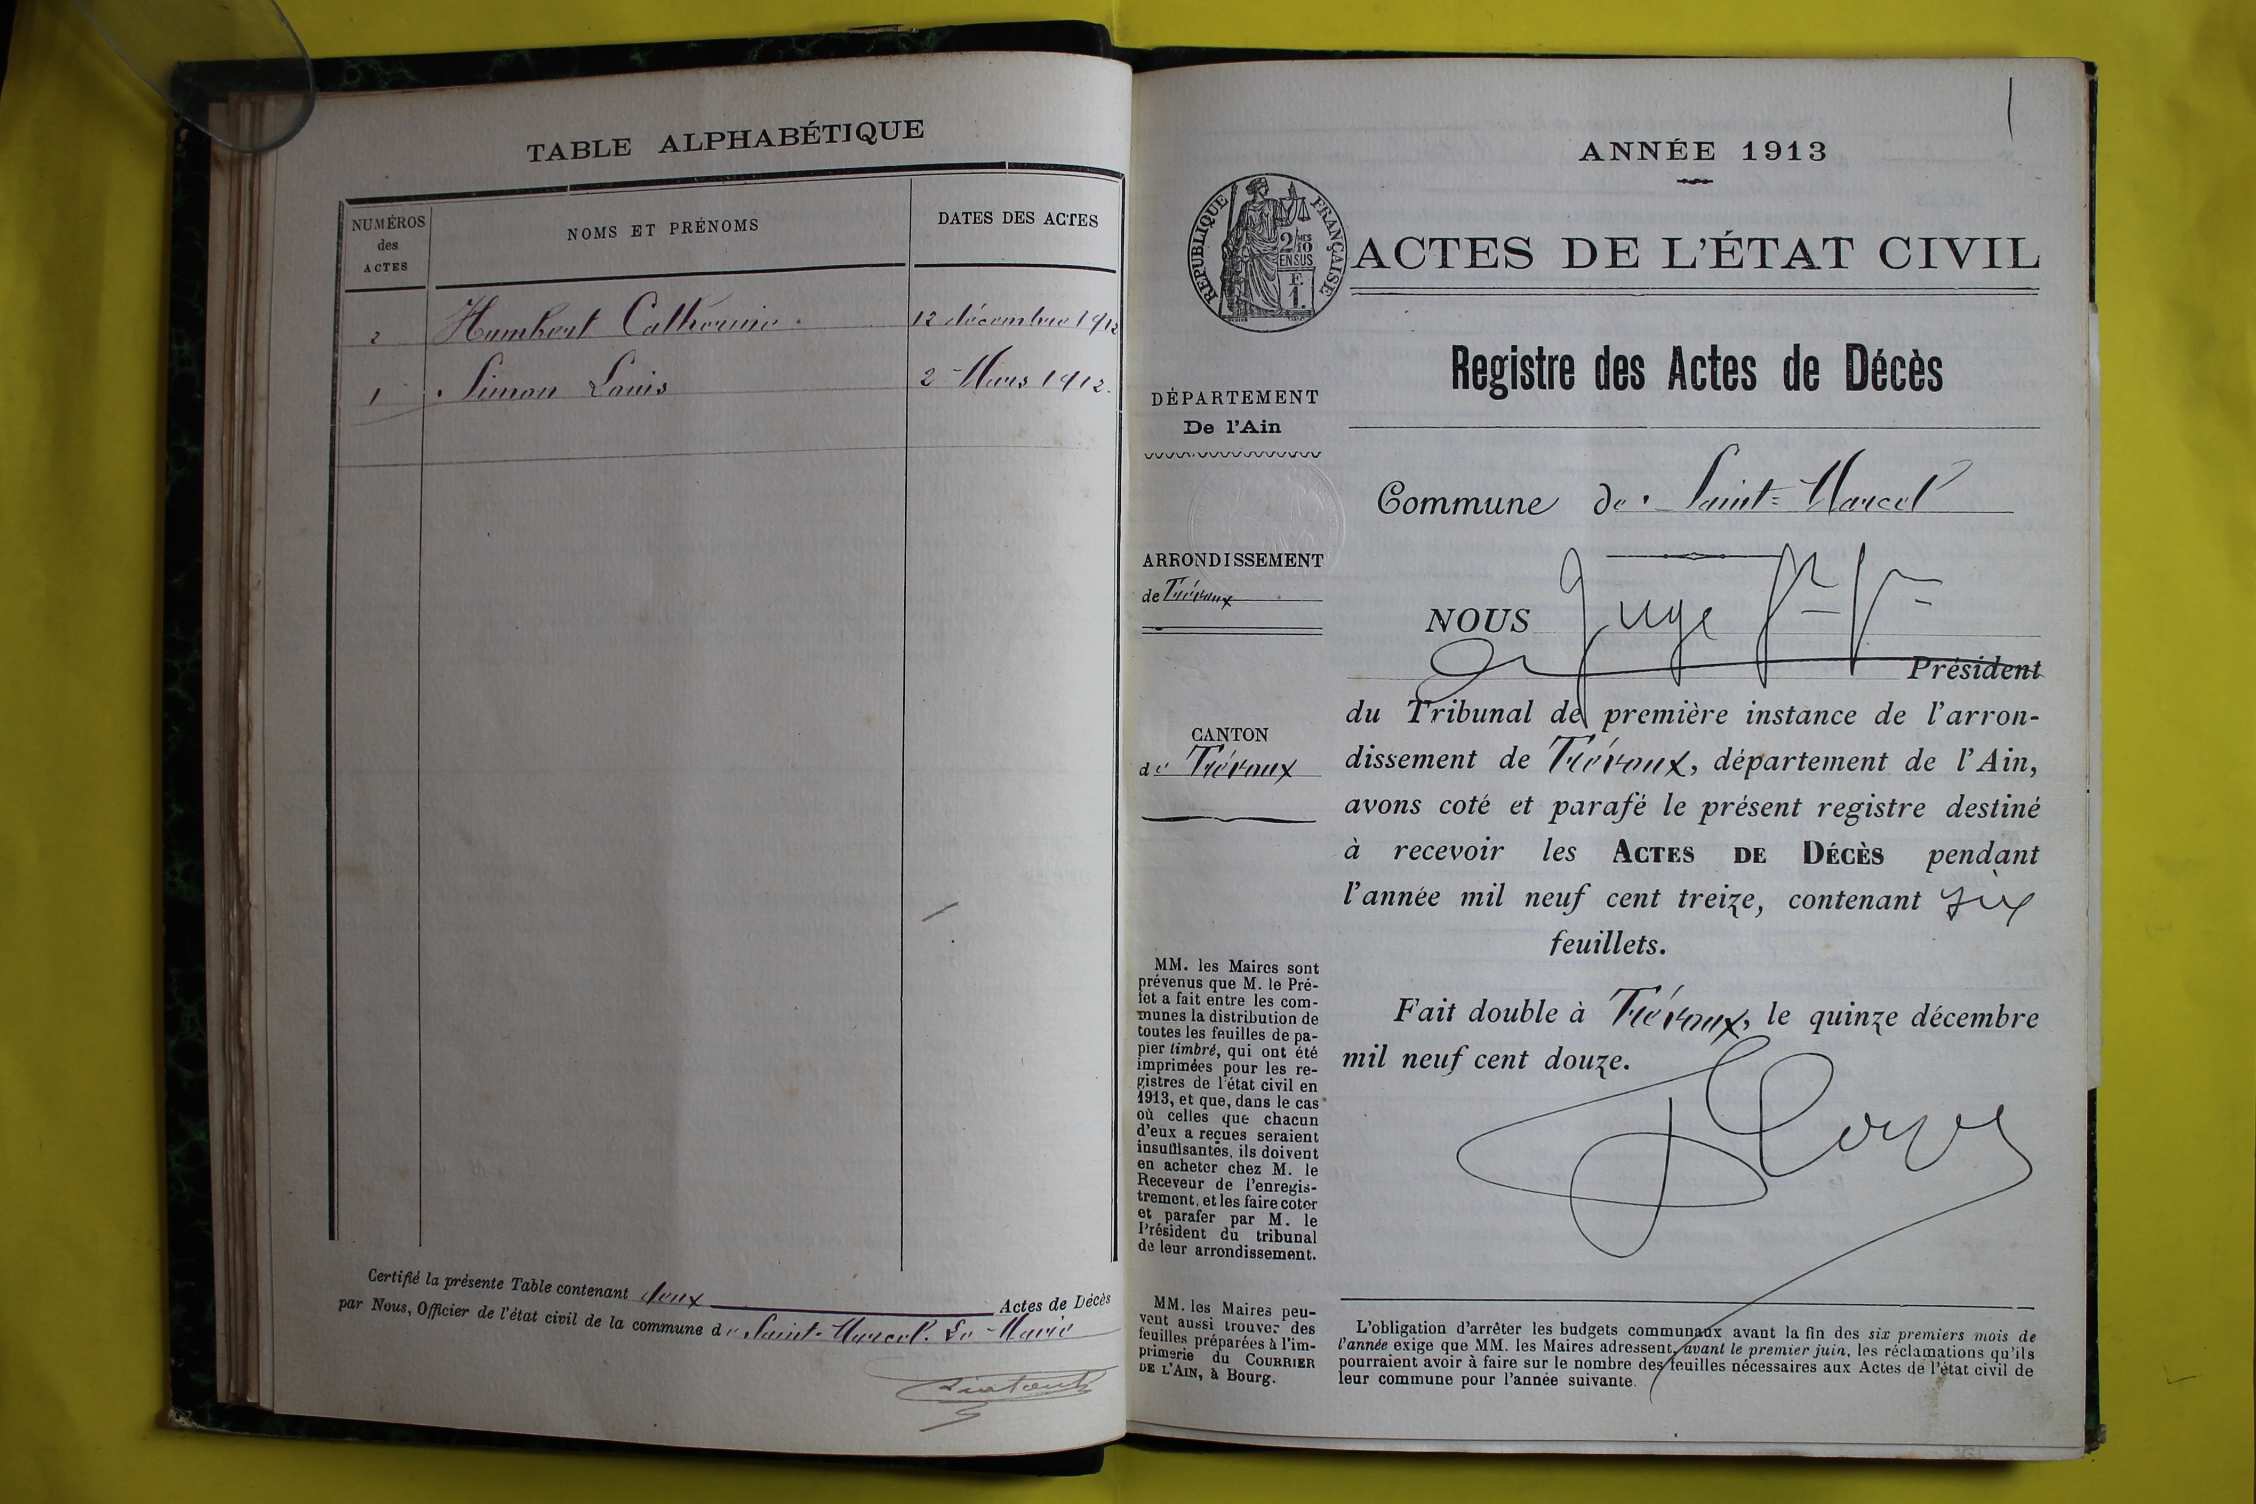 TABLE ALPHABÉTIQUE
NUMÉROS
des
ACTES
NOMS ET PRÉNOMS
DATES DES ACTES
2 Humbert Catherine. 12 décembre 1912
1 Simon Louis 2 Mars 1912.
Certifié la présente Table contenant deux Actes de Décès
par Nous, Officier de l'état civil de la commune de Saint-Marcel. Le Maire
ANNÉE 1913
RÉPUBLIQUE FRANÇAISE
2/10 MES
EN SUS
E
1.
ACTES DE L'ÉTAT CIVIL
Registre des Actes de Décès
DÉPARTEMENT
De l'Ain
ARRONDISSEMENT
de Trévoux
CANTON
de Trévoux
MM. les Maires sont
prévenus que M. le Pré-
fet a fait entre les com-
munes la distribution de
toutes les feuilles de pa-
pier timbré, qui ont été
imprimées pour les re-
gistres de l'état civil en
1913, et que, dans le cas
où celles que chacun
d'eux a reçues seraient
insuffisantes, ils doivent
en acheter chez M. le
Receveur de l'enregis-
trement, et les faire coter
et parafer par M. le
Président du tribunal
de leur arrondissement.
MM. les Maires peu-
vent aussi trouver des
feuilles préparées à l'im-
primerie du COURRIER
DE L'AIN, à Bourg.
Commune de Saint-Marcel
NOUS Juge
Président
du Tribunal de première instance de l'arron-
dissement de Trévoux, département de l'Ain,
avons coté et parafé le présent registre destiné
à recevoir les ACTES DE DÉCÈS pendant
l'année mil neuf cent treize, contenant six
feuillets.
Fait double à Trévoux, le quinze décembre
mil neuf cent douze.
L'obligation d'arrêter les budgets communaux avant la fin des six premiers mois de
l'année exige que MM. les Maires adressent, avant le premier juin, les réclamations qu'ils
pourraient avoir à faire sur le nombre des feuilles nécessaires aux Actes de l'état civil de
leur commune pour l'année suivante.